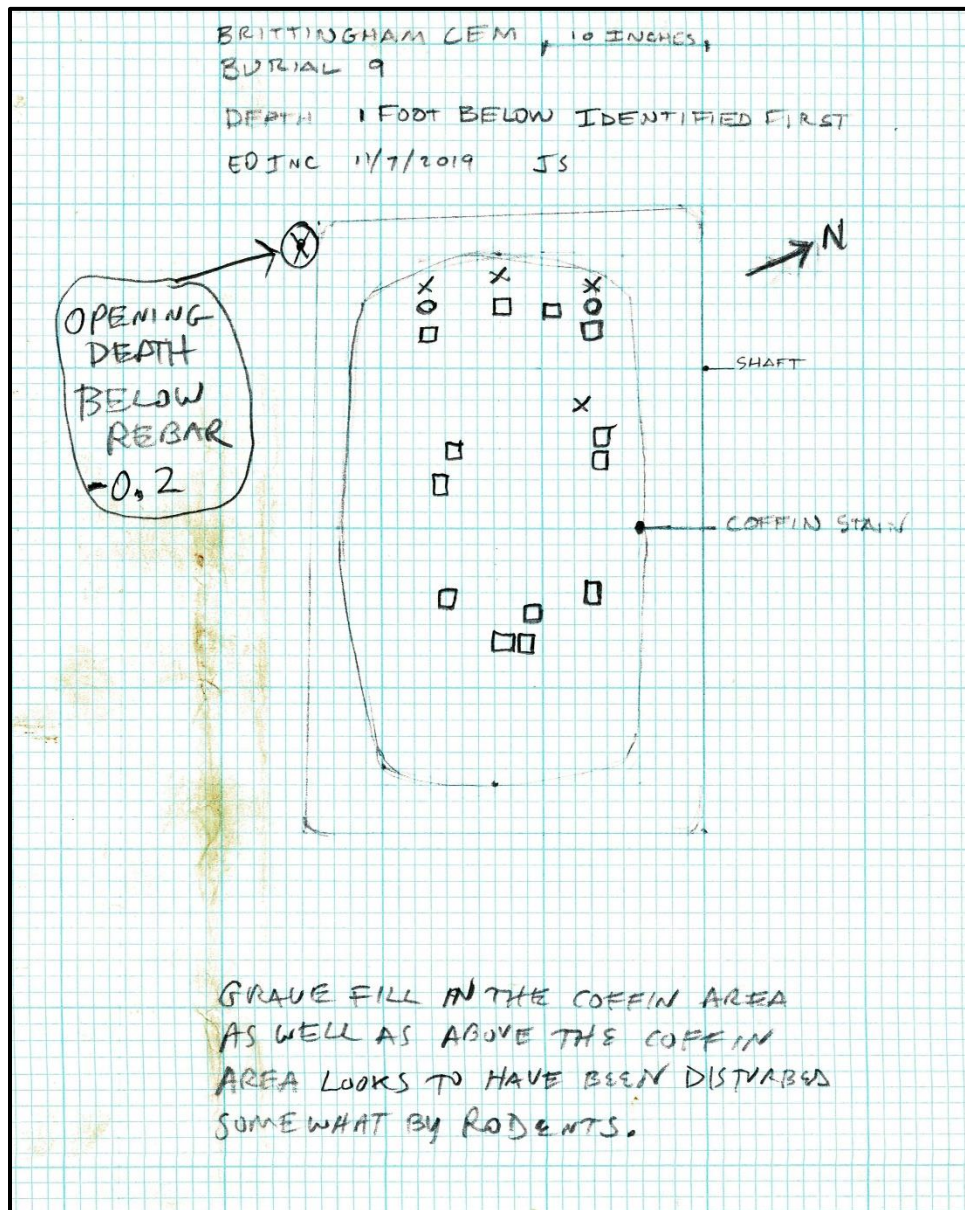 BRITTINGHAM CEM, 10 INCHES,
BURIAL 9
DEPTH 1 FOOT BELOW IDENTIFIED FIRST
EDINC 11/7/2019 JS
N
OPENING
DEATH
BELOW
REBAR
-0.2
SHAFT
COFFIN STAIN
GRAVE FILL IN THE COFFIN AREA
AS WELL AS ABOVE THE COFFIN
AREA LOOKS TO HAVE BEEN DISTURBED
SOMEWHAT BY RODENTS.